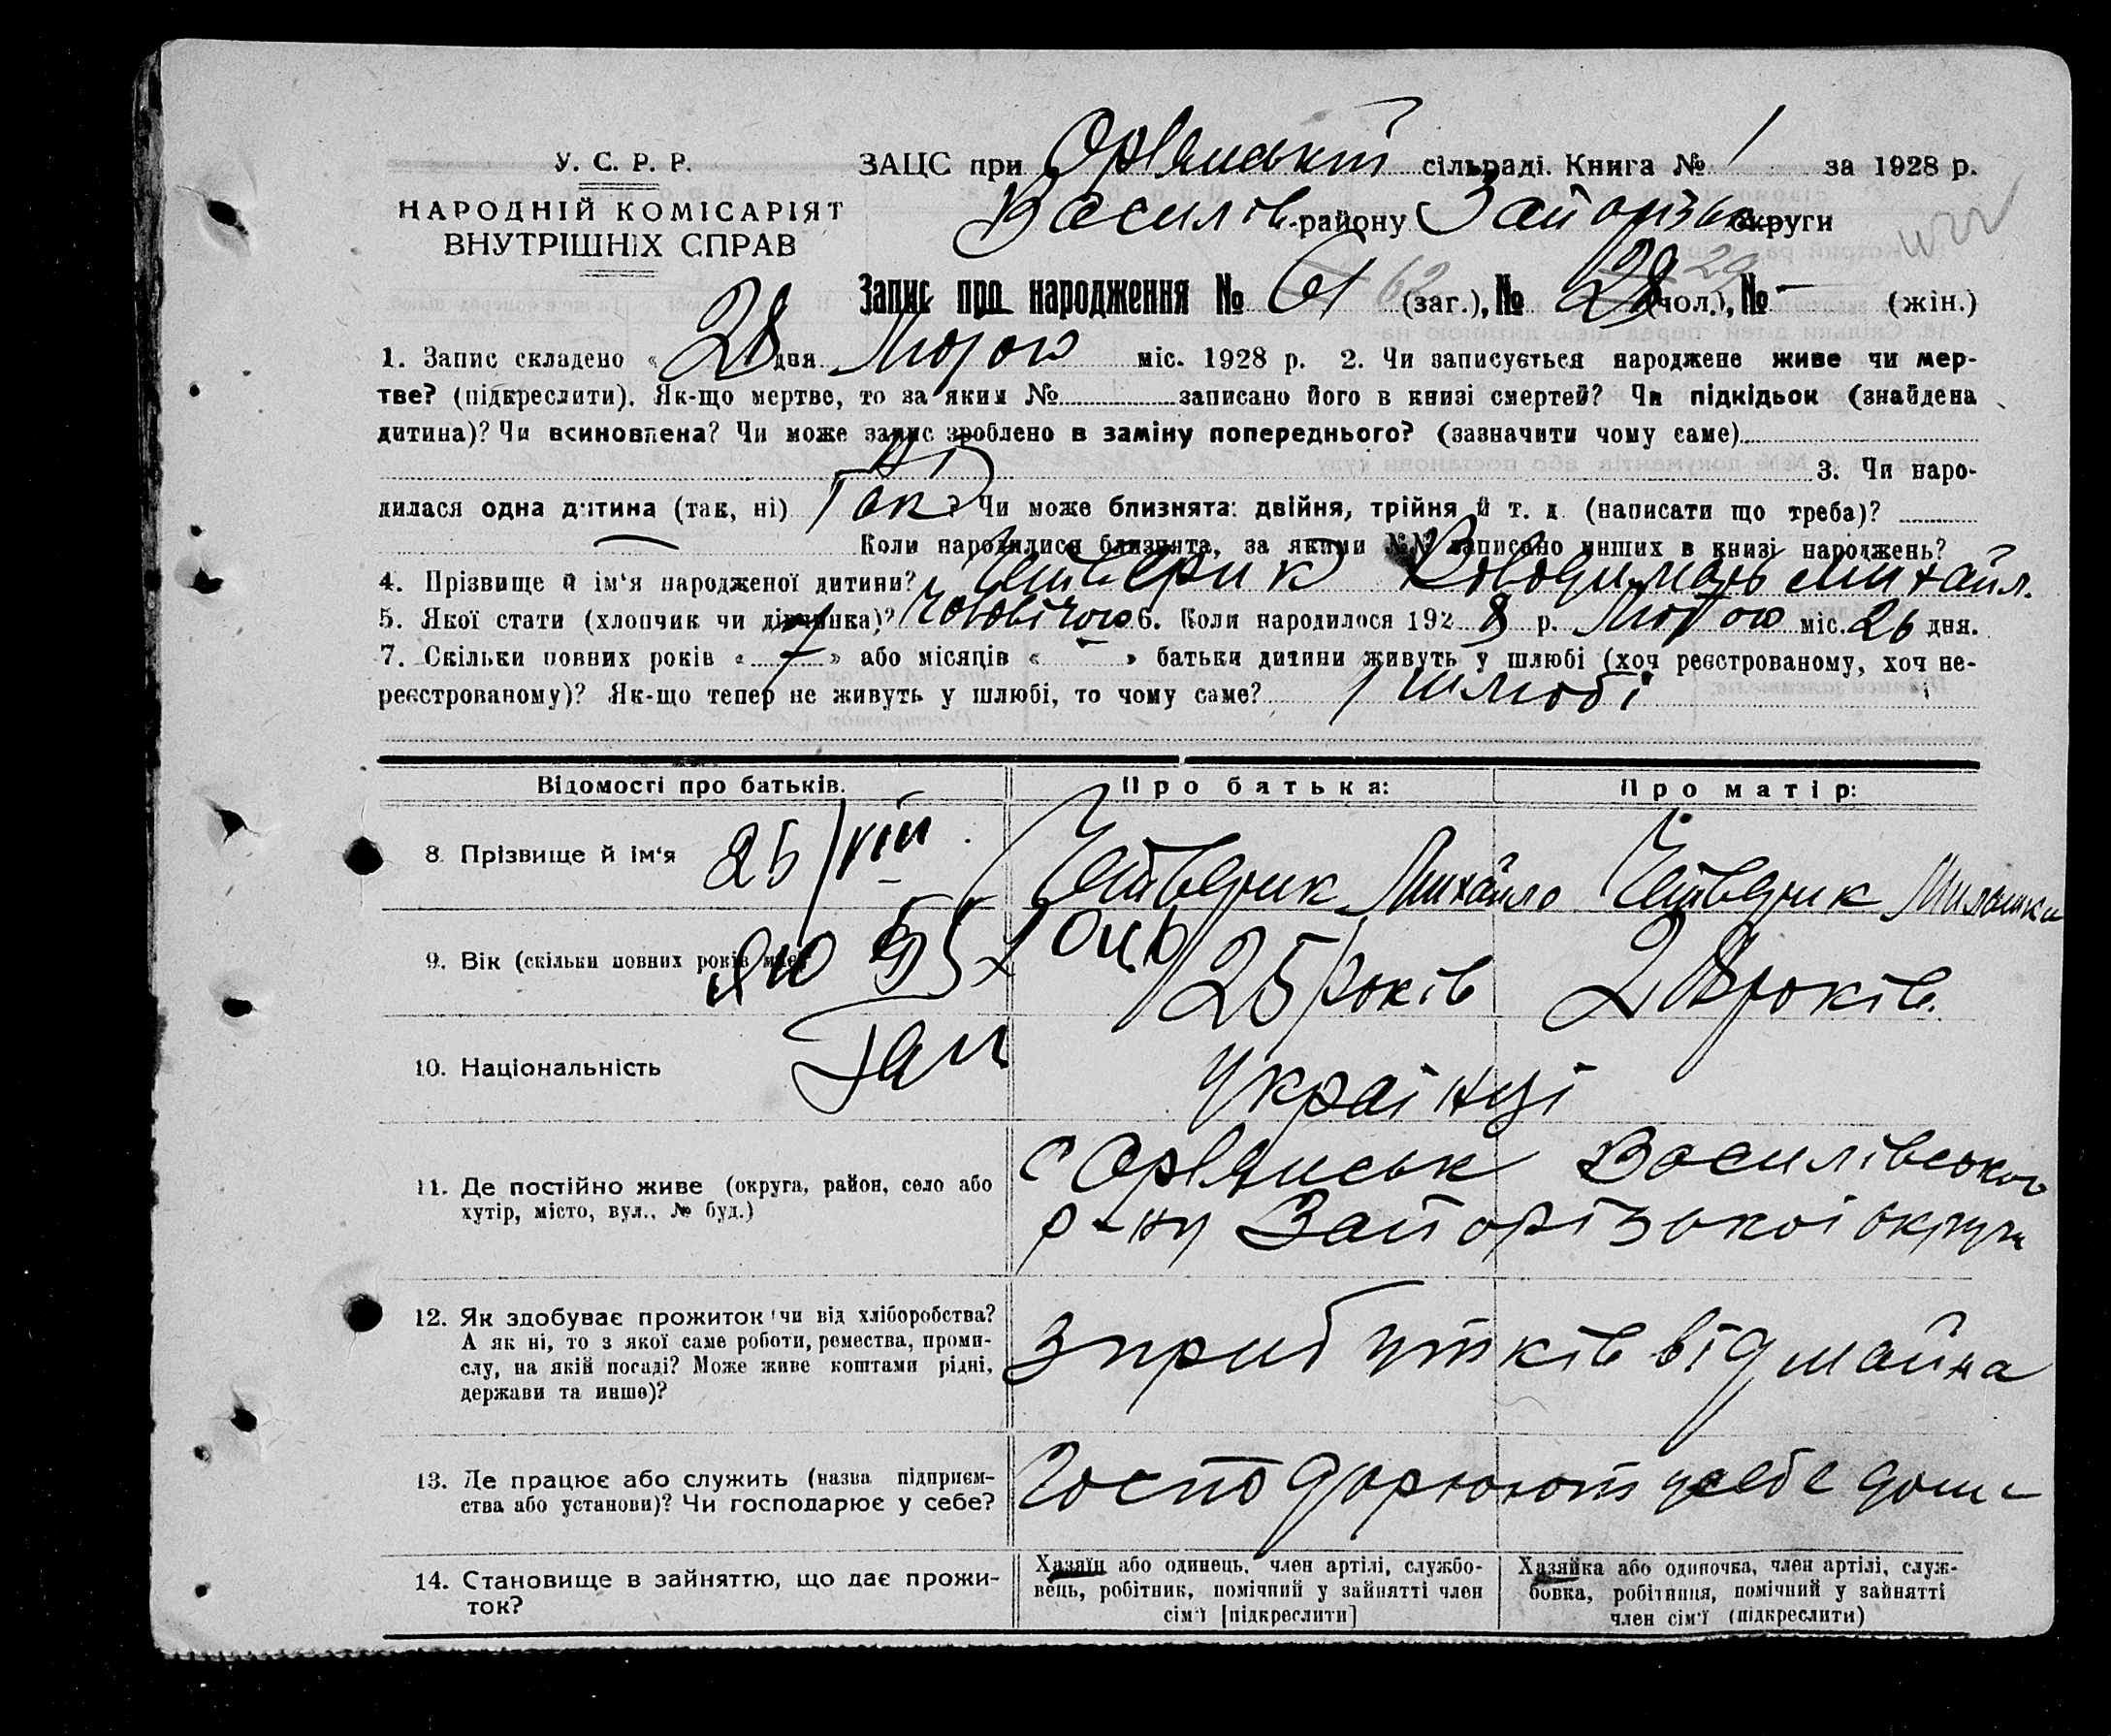 У. С. Р. Р.
НАРОДНІЙ КОМІСАРІЯТ
ВНУТРІШНІХ СПРАВ
ЗАЦС при Орлянській сільраді. Книга № 1 за 1928 р.
Василів району Запорізьк округи
Запис про народження № 61 62 (заг.), № 28 29 (чол.), № — (жін.)
1. Запис складено « 28 дня Лютого міс. 1928 р. 2. Чи записується народжене живе чи мер-
тве? (підкреслити). Як-що мертве, то за яким № записано його в книзі смертей? Чи підкідьок (знайдена
дитина)? Чи всиновлена? Чи може запис зроблено в заміну попереднього? (зазначити чому саме)
Ні 3. Чи наро-
дилася одна дитина (так, ні) Так ? Чи може близнята: двійня, трійня й т. д. (написати що треба)?
Коли народилися близнята, за якими №№ записано инших в книзі народжень?
4. Прізвище й ім'я народженої дитини? Четверик Володимир Михайл.
5. Якої стати (хлопчик чи дівчинка)? Чоловічого 6. Коли народилося 1928 р. Лютого міс. 26 дня.
7. Скільки повних років « 7 » або місяців « – » батьки дитини живуть у шлюбі (хоч реєстрованому, хоч не-
реєстрованому)? Як-що тепер не живуть у шлюбі, то чому саме? У шлюбі
Відомості про батьків.
Про батька:
Про матір:
8. Прізвище й ім'я
25/VIII
Четверик Михайло
Четверик
9. Вік (скільки повних років має)
25 років
28 років.
10. Національність
Українці
11. Де постійно живе (округа, район, село або
хутір, місто, вул., № буд.)
с Орлянськ Василівського
р-ну Запорізької округи
12. Як здобуває прожиток: чи від хліборобства?
А як ні, то з якої саме роботи, ремества, проми-
слу, на якій посаді? Може живе коштами рідні,
держави та инше)?
З прибутків від майна
13. Де працює або служить (назва підприєм-
ства або установи)? Чи господарює у себе?
Господарюют у себе дома
14. Становище в зайняттю, що дає прожи-
ток?
Хазяїн або одинець, член артілі, службо-
вець, робітник, помічний у зайнятті член
сім'ї [підкреслити]
Хазяйка або одиночка, член артілі, служ-
бовка, робітниця, помічний у зайнятті
член сім'ї (підкреслити)